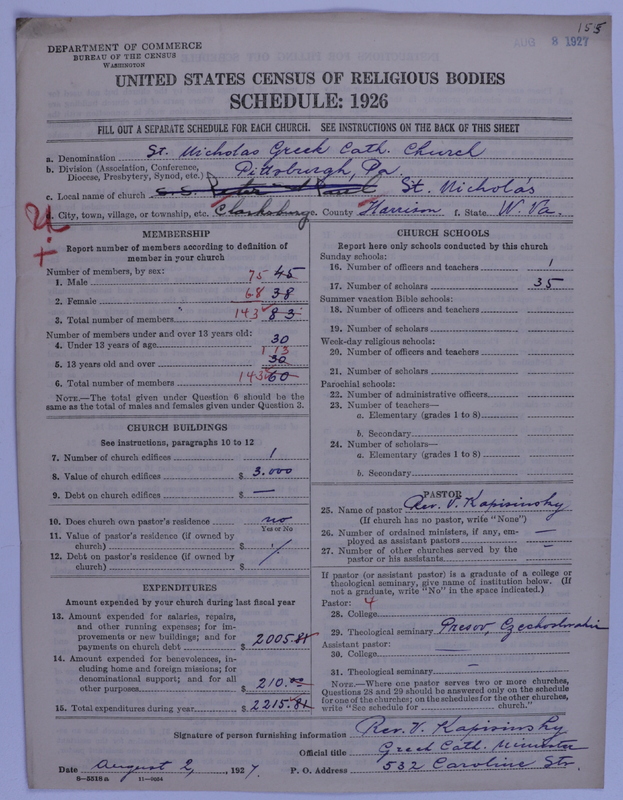 155
AUG 8 1927
DEPARTMENT OF COMMERCE
BUREAU OF THE CENSUS
WASHINGTON
UNITED STATES CENSUS OF RELIGIOUS BODIES
SCHEDULE: 1926
FILL OUT A SEPARATE SCHEDULE FOR EACH CHURCH. SEE INSTRUCTIONS ON THE BACK OF THIS SHEET
a. Denomination St. Nicholas Greek Cath. Church
b. Division (Association, Conference, Diocese, Presbytery, Synod, etc.) Pittsburgh, Pa.
c. Local name of church S.S. Peter and Paul St. Nicholas
d. City, town, village, or township, etc. Clarksburg e. County Harrison f. State W. Va.
MEMBERSHIP
Report number of members according to definition of
member in your church
Number of members, by sex:
1. Male 75 45
2. Female 68 38
3. Total number of members 143 83
Number of members under and over 13 years old:
4. Under 13 years of age 30
5. 13 years old and over 113 30
6. Total number of members 143 60
NOTE.—The total given under Question 6 should be the
same as the total of males and females given under Question 3.
CHURCH BUILDINGS
See instructions, paragraphs 10 to 12
7. Number of church edifices 1
8. Value of church edifices $ 3.000
9. Debt on church edifices $ —
10. Does church own pastor's residence no
Yes or No
11. Value of pastor's residence (if owned by
church) $
12. Debt on pastor's residence (if owned by
church) $
EXPENDITURES
Amount expended by your church during last fiscal year
13. Amount expended for salaries, repairs,
and other running expenses; for im-
provements or new buildings; and for
payments on church debt $ 2005.81
14. Amount expended for benevolences, in-
cluding home and foreign missions; for
denominational support; and for all
other purposes $ 210.00
15. Total expenditures during year $ 2215.81
CHURCH SCHOOLS
Report here only schools conducted by this church
Sunday schools:
16. Number of officers and teachers 1
17. Number of scholars 35
Summer vacation Bible schools:
18. Number of officers and teachers
19. Number of scholars
Week-day religious schools:
20. Number of officers and teachers
21. Number of scholars
Parochial schools:
22. Number of administrative officers
23. Number of teachers—
a. Elementary (grades 1 to 8)
b. Secondary
24. Number of scholars—
a. Elementary (grades 1 to 8)
b. Secondary
PASTOR
25. Name of pastor Rev. V. Kapisinsky
(If church has no pastor, write "None")
26. Number of ordained ministers, if any, em-
ployed as assistant pastors —
27. Number of other churches served by the
pastor or his assistants —
If pastor (or assistant pastor) is a graduate of a college or
theological seminary, give name of institution below. (If
not a graduate, write "No" in the space indicated.)
Pastor: 4
28. College
29. Theological seminary Presov, Czechoslovakia
Assistant pastor:
30. College —
31. Theological seminary —
NOTE.—Where one pastor serves two or more churches,
Questions 28 and 29 should be answered only on the schedule
for one of the churches; on the schedules for the other churches,
write "See schedule for church."
Signature of person furnishing information Rev. V. Kapisinsky
Official title Greek Cath. Minister
Date August 2, 1927. P. O. Address 532 Caroline Str.
8—5518 a 11—9034